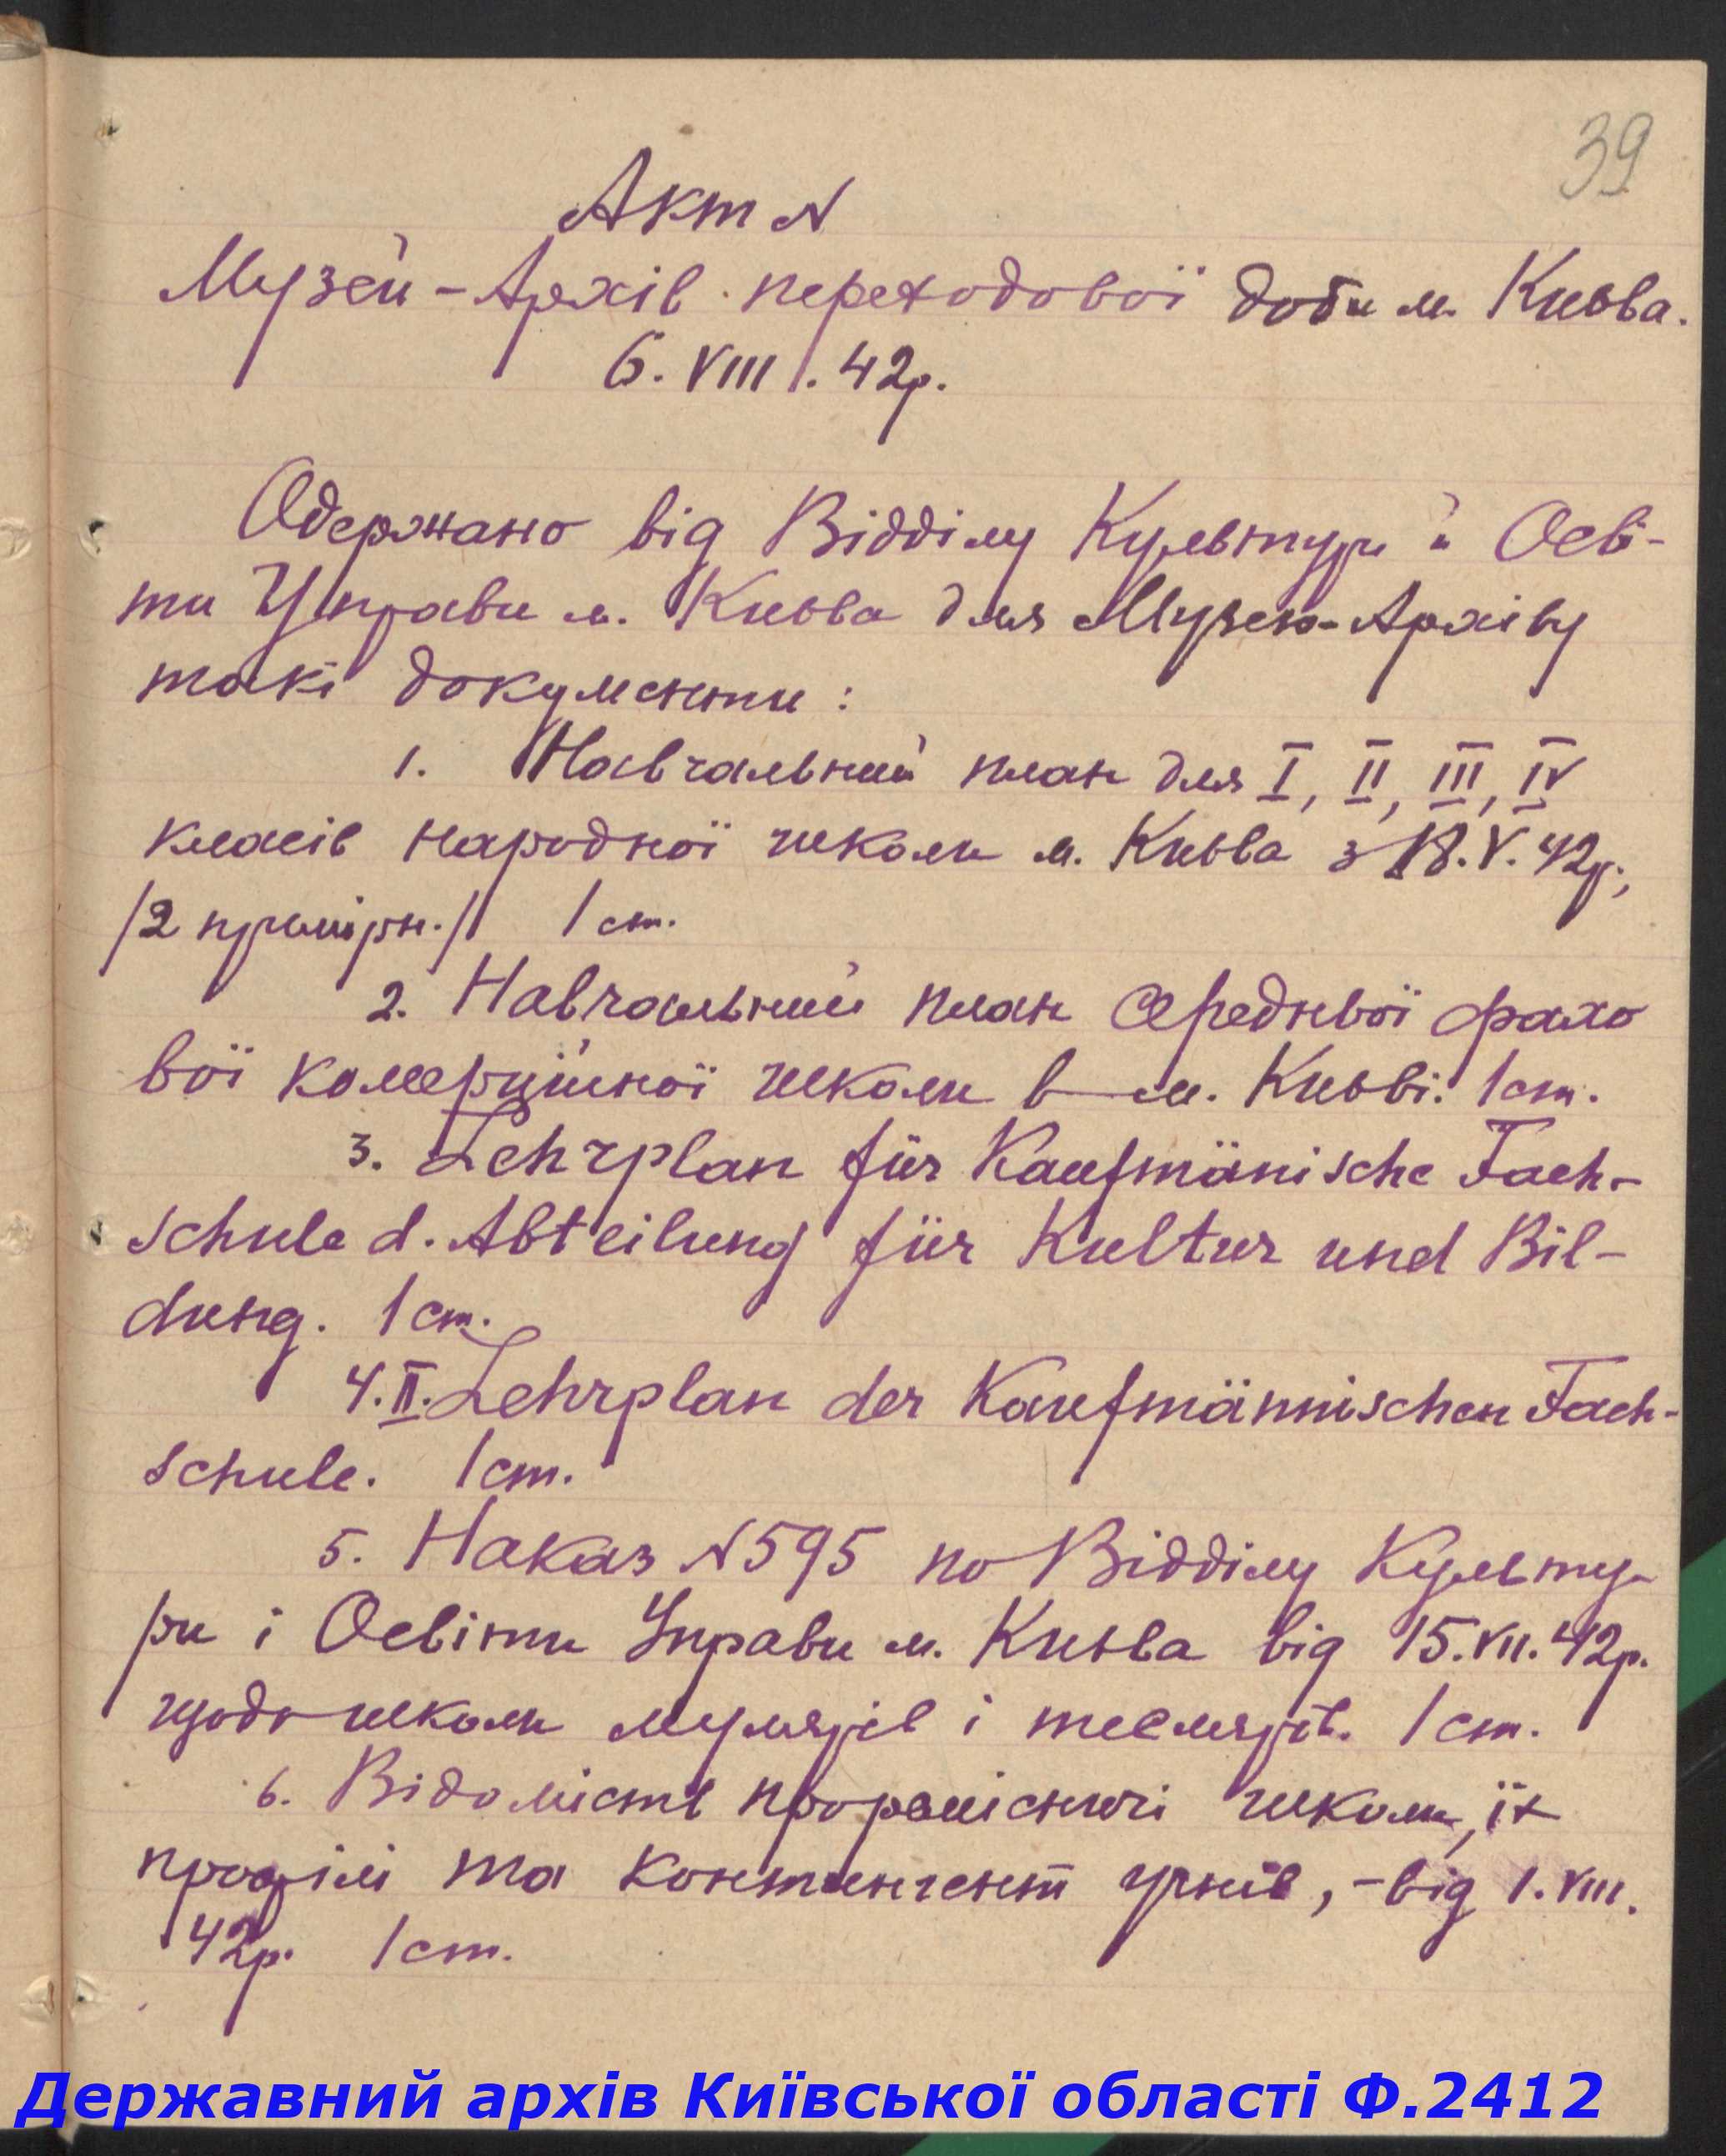 39
Акт N
Музей - Архів переходової доби м. Києва.
6. VIII. 42р.
Одержано від Відділу Культури й Осві-
ти Управи м. Києва для Музею-Архіву
такі документи:
1. Навчальний план для I, II, III, IV
класів народної школи м. Києва з 18.V.42р.,
/2 примірн./ 1 ст.
2. Навчальний план середньої фахо
вої комерційної школи в м. Києві. 1 ст.
3. Lehrplan für Kaufmänische Fach-
schule d. Abteilung für Kultur und Bil-
dung. 1 ст.
4. II. Lehrplan der Kaufmännischen Fach-
schule. 1 ст.
5. Наказ N 595 по Відділу Культу-
ри і Освіти Управи м. Києва від 15.VII.42р.
щодо школи мулярів і теслярів. 1 ст.
6. Відомість про ремісничі школи, їх
профілі та контингент учнів, - від 1.VIII.
42р. 1 ст.
Державний архів Київської області Ф.2412